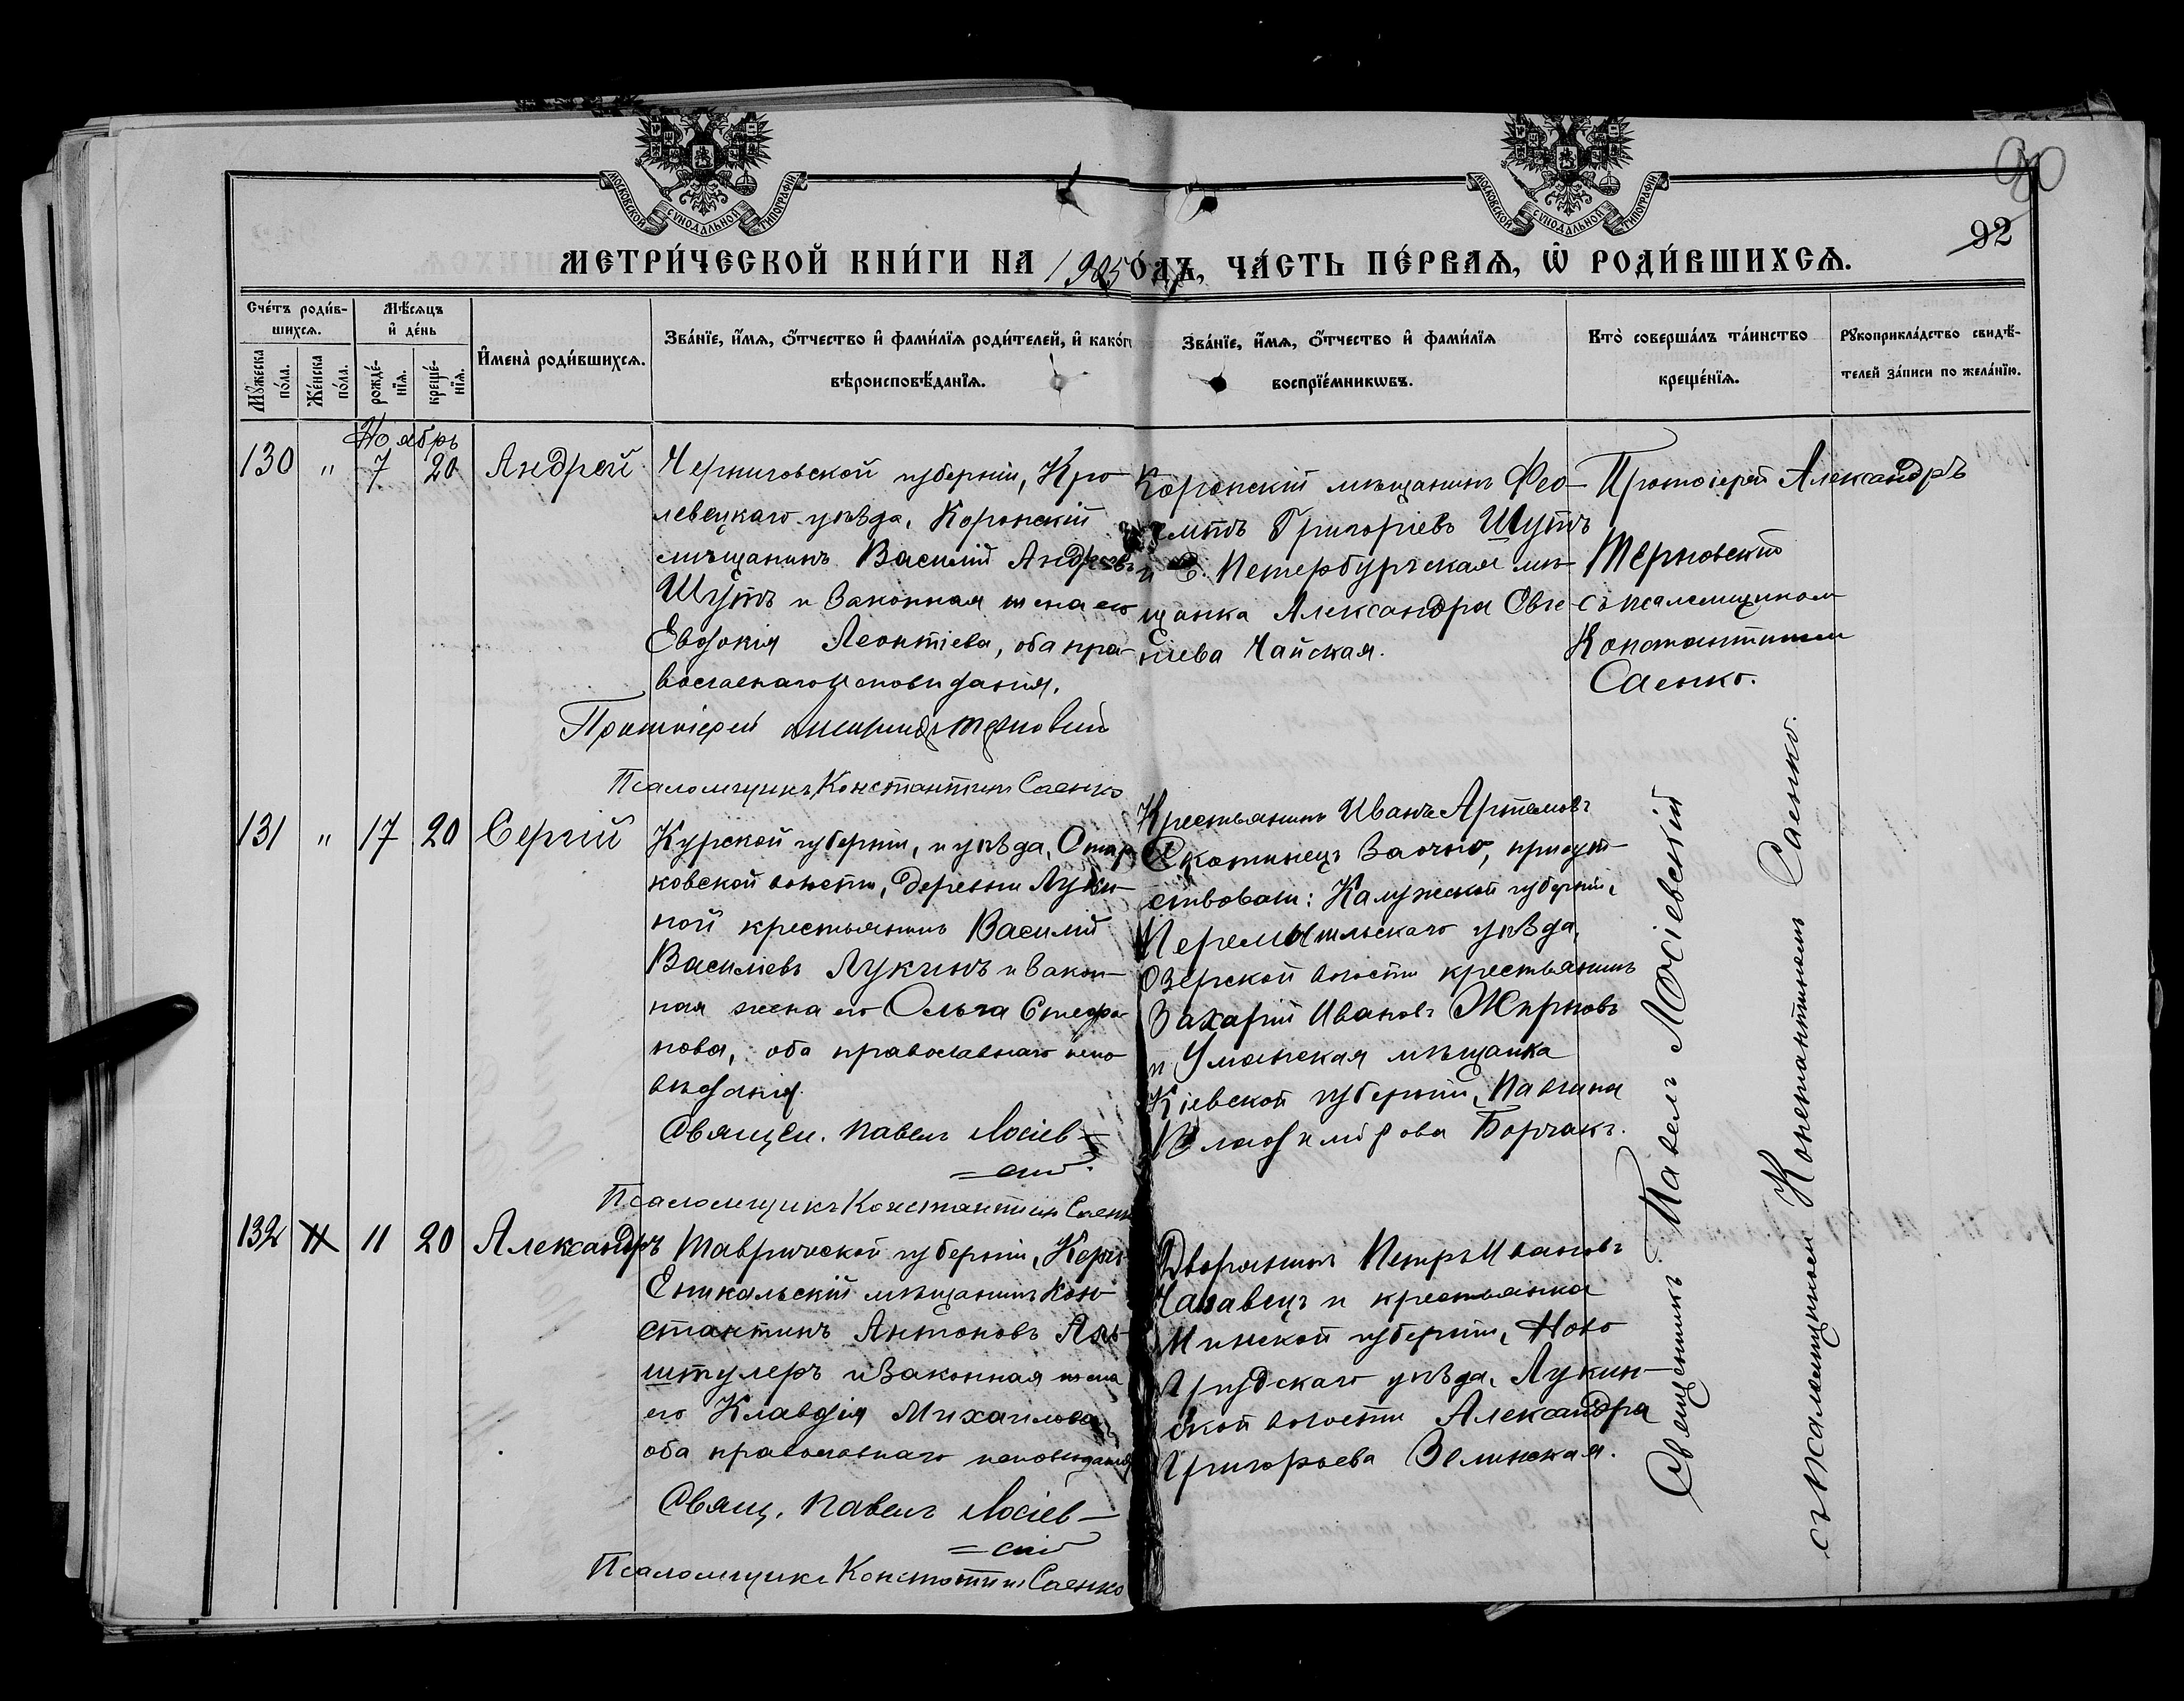 МОСКОВСКОЙ СѴНОДАЛЬНОЙ ТИПОГРАФІИ
МОСКОВСКОЙ СѴНОДАЛЬНОЙ ТИПОГРАФІИ
90
92
МЕТРИ́ЧЕСКОЙ КНИ́ГИ НА 1905 ГО́ДЪ, ЧА́СТЬ ПЕ́РВАѦ, Ѡ҆ РОДИ́ВШИХСѦ.
Сче́тъ роди́в-
шихсѧ.
Мꙋ́жеска по́ла.
Же́нска по́ла.
Мѣ́сѧцъ
и҆ де́нь
рожде́-
нїѧ.
креще́-
нїѧ.
И҆мена̀ роди́вшихсѧ.
Зва́нїе, и҆́мѧ, ѻ҆́тчество и҆ фами́лїѧ роди́телей, и҆ како́гѡ
вѣроисповѣ́данїѧ.
Зва́нїе, и҆́мѧ, ѻ҆́тчество и҆ фами́лїѧ
воспрїе́мникѡвъ.
Кто̀ соверша́лъ та́инство
креще́нїѧ.
Рꙋкоприкла́дство свидѣ́-
телей за́писи по жела́нїю.
Ноябрь
130 " 7 20 Андрей
Черниговской губерніи, Кро-
левецкаго уѣзда, Коропскій
мѣщанинъ Василій Андреевъ
Шутъ и законная жена его
Евдокія Леонтіева, оба пра-
вославнаго исповѣданія.
Протоіерей Александръ Терновскій
Псаломщикъ Константинъ Саенко
Коропскій мѣщанинъ Фео-
Григоріевъ Шутъ
и С. Петербургская мѣ-
щанка Александра Евге-
ніева Чайская.
Протоіерей Александръ
Терновскій
съ псаломщикомъ
Константиномъ
Саенко.
131 " 17 20 Сергій
Курской губерніи, и уѣзда,
ковской волости, деревни Луки-
ной крестьянинъ Василій
Василіевъ Лукинъ и закон-
ная жена его Ольга Стефа-
нова, оба православнаго испо-
вѣданія.
Священ. Павелъ Мосіев-
=скій.
Псаломщикъ Константинъ Саенко
Крестьянинъ Иванъ Артемовъ
Скотинецъ заочно, присут-
ствовали: Калужской губерніи,
Перемышльскаго уѣзда,
Озерской волости крестьянинъ
Захарій Ивановъ Жирновъ
и Уманская мѣщанка
Кіевской губерніи, Павлина
Владимірова Борчакъ.
132 11 20 Александръ
Таврической губерніи, Керчь-
Еникальскій мѣщанинъ Кон-
стантинъ Антоновъ
штулеръ и законная жена
его Клавдія Михаилова,
оба православнаго исповѣданія
Свящ. Павелъ Мосіев-
=скій
Псаломщикъ Константинъ Саенко
Дворянинъ Петръ Ивановъ
и крестьянка
Минской губерніи, Ново-
грудскаго уѣзда, Лукин-
ской волости Александра
Григорьева Велинская.
Священникъ Павелъ Мосіевскій
съ псаломщикомъ Константиномъ Саенко.